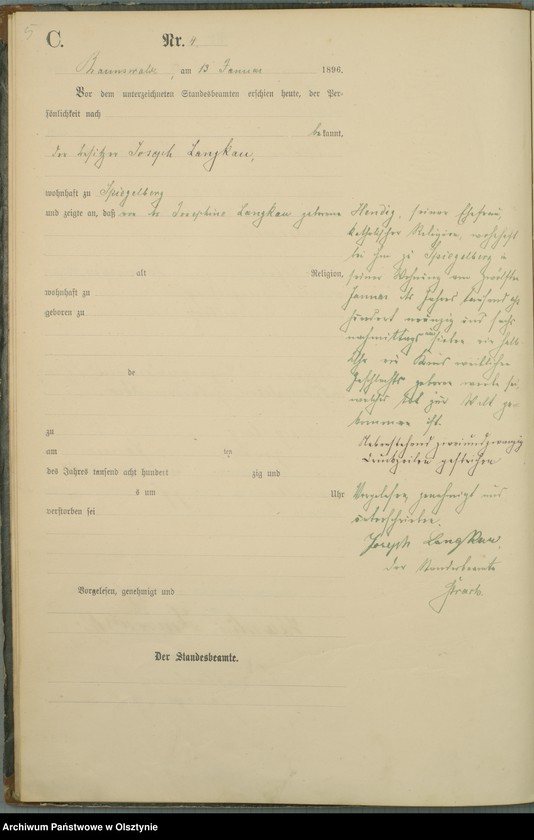 5
C.
Nr. 4.
Braunswalde, am 13 Januar 1896.
Vor dem unterzeichneten Standesbeamten erschien heute, der Per-
sönlichkeit nach
bekannt,
der Besitzer Joseph Langkau,
wohnhaft zu Spiegelberg
und zeigte an, daß von der Josephine Langkau geborene
alt Religion,
wohnhaft zu
geboren zu
de
zu
am ten
des Jahres tausend acht hundert zig und
s um Uhr
verstorben sei
Vorgelesen, genehmigt und
Der Standesbeamte.
seiner Ehefrau,
katholischer Religion, wohnhaft
bei ihm zu Spiegelberg in
seiner Wohnung am zwölften
Januar des Jahres tausend acht
hundert neunzig und sechs
nachmittags um sieben ein halb
Uhr ein Kind weiblichen
Geschlechts geboren worden sei,
welches tot zur Welt ge-
kommen ist.
Nebenstehend zweiundzwanzig
Druckzeilen gestrichen
Vorgelesen, genehmigt und
unterschrieben.
Joseph Langkau.
Der Standesbeamte
Archiwum Państwowe w Olsztynie